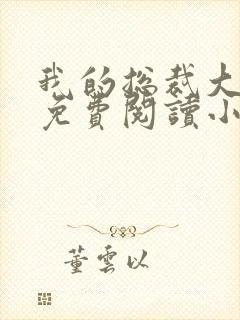 我的总裁大
免費閱讀小
董雲以